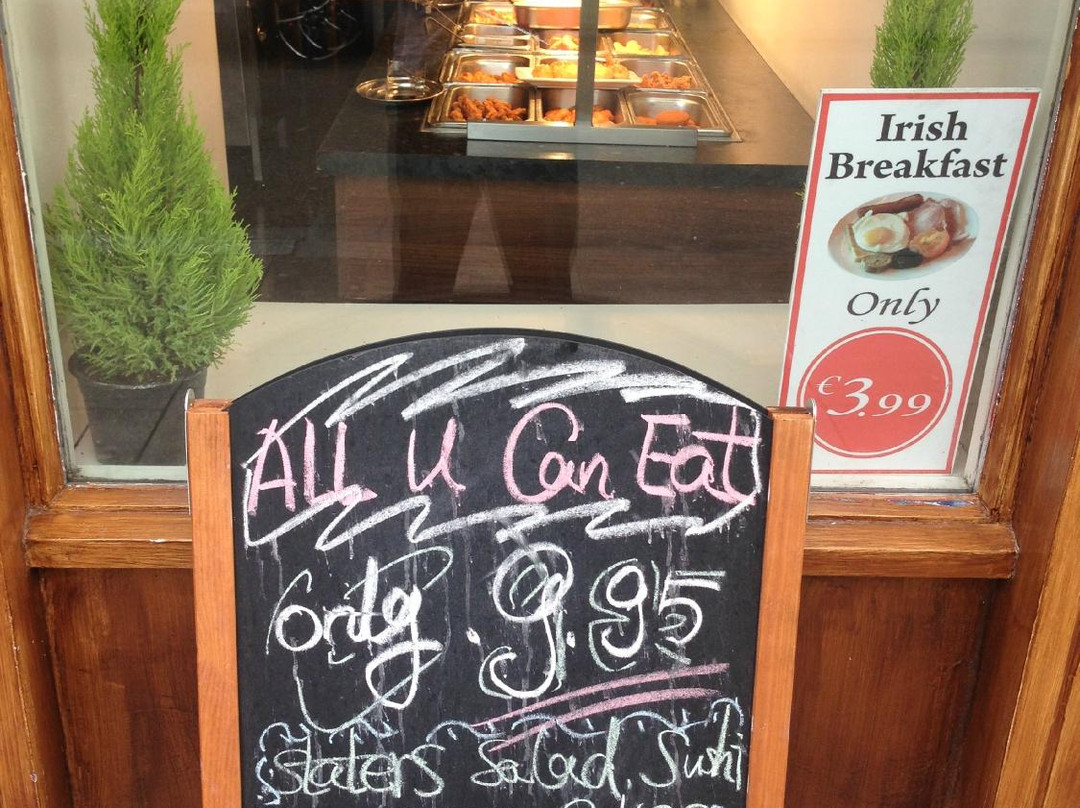 Irish
Breakfast
Only
€3.99
ALL U Can Eat
only 9.95
Staters Salad Sushi